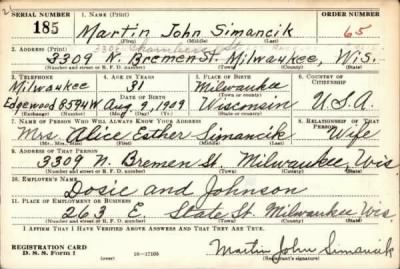 SERIAL NUMBER 1. NAME (Print) ORDER NUMBER
185 Martin John Simancik 65
(First) (Middle) (Last)
2. ADDRESS (Print)
3309 N. Bremen St. Milwaukee, Wis.
(Number and street or R. F. D. number) (Town) (County) (State)
3. TELEPHONE 4. AGE IN YEARS 5. PLACE OF BIRTH 6. COUNTRY OF CITIZENSHIP
Milwaukee 31 Milwaukee
DATE OF BIRTH (Town or county)
Edgewood 8594W Aug 9, 1909 Wisconsin U.S.A.
(Exchange) (Number) (Mo.) (Day) (Yr.) (State or country)
7. NAME OF PERSON WHO WILL ALWAYS KNOW YOUR ADDRESS 8. RELATIONSHIP OF THAT PERSON
Mrs. Alice Esther Simancik Wife
(Mr., Mrs., Miss) (First) (Middle) (Last)
9. ADDRESS OF THAT PERSON
3309 N. Bremen St. Milwaukee Wis
(Number and street or R. F. D. number) (Town) (County) (State)
10. EMPLOYER'S NAME
Dosie and Johnson
11. PLACE OF EMPLOYMENT OR BUSINESS
263 E. State St. Milwaukee Wis.
(Number and street or R. F. D. number) (Town) (County) (State)
I AFFIRM THAT I HAVE VERIFIED ABOVE ANSWERS AND THAT THEY ARE TRUE.
REGISTRATION CARD Martin John Simancik
D. S. S. Form 1 (over) 16—17105 (Registrant's signature)